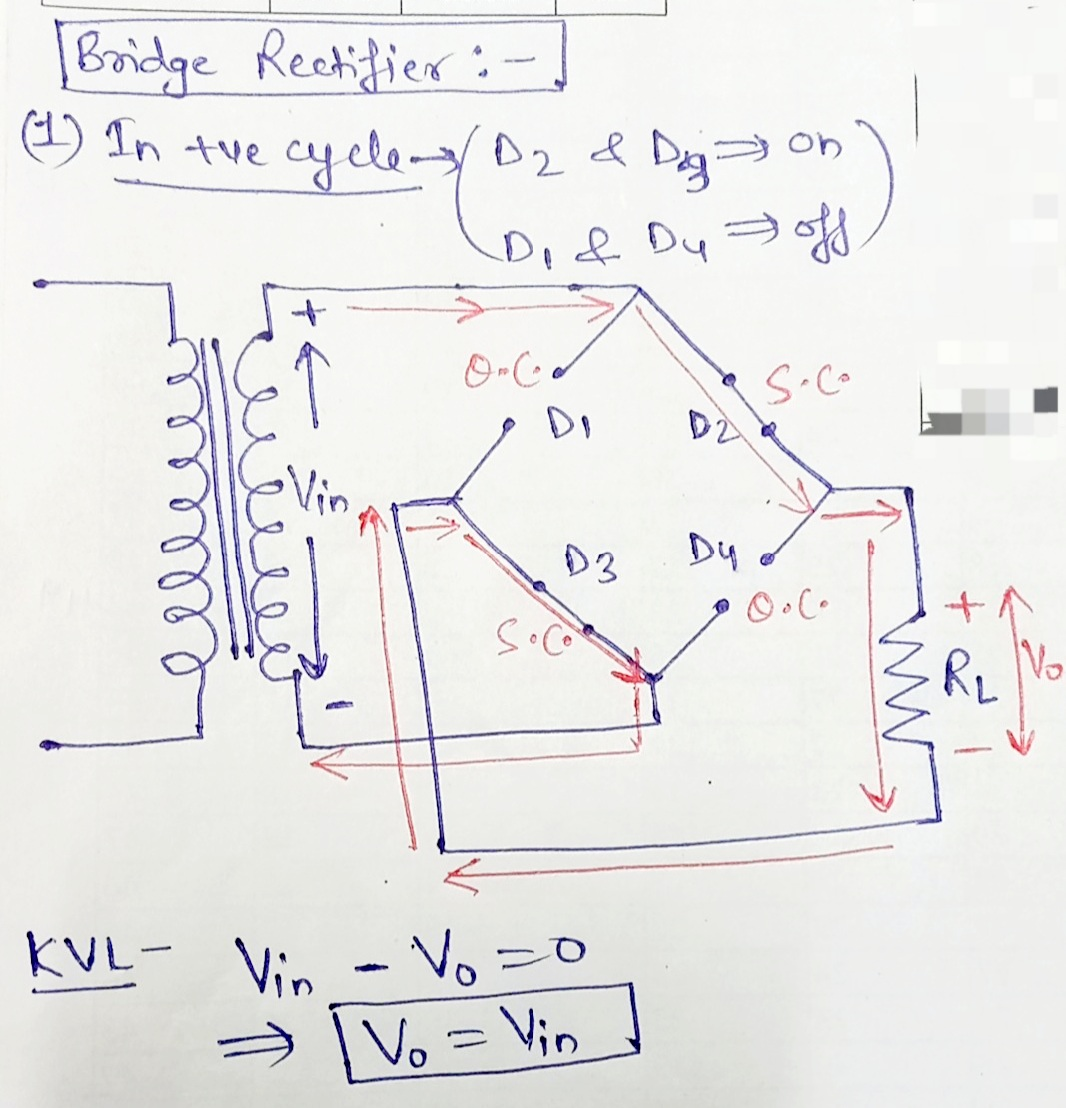 Bridge Rectifier :-
(1) In +ve cycle → (D2 & D3 ⇒ on
D1 & D4 ⇒ off)
+
O.C.
S.C.
D1
D2
Vin
D3
D4
S.C.
O.C.
+
RL
Vo
-
-
KVL- Vin - Vo = 0
⇒ Vo = Vin